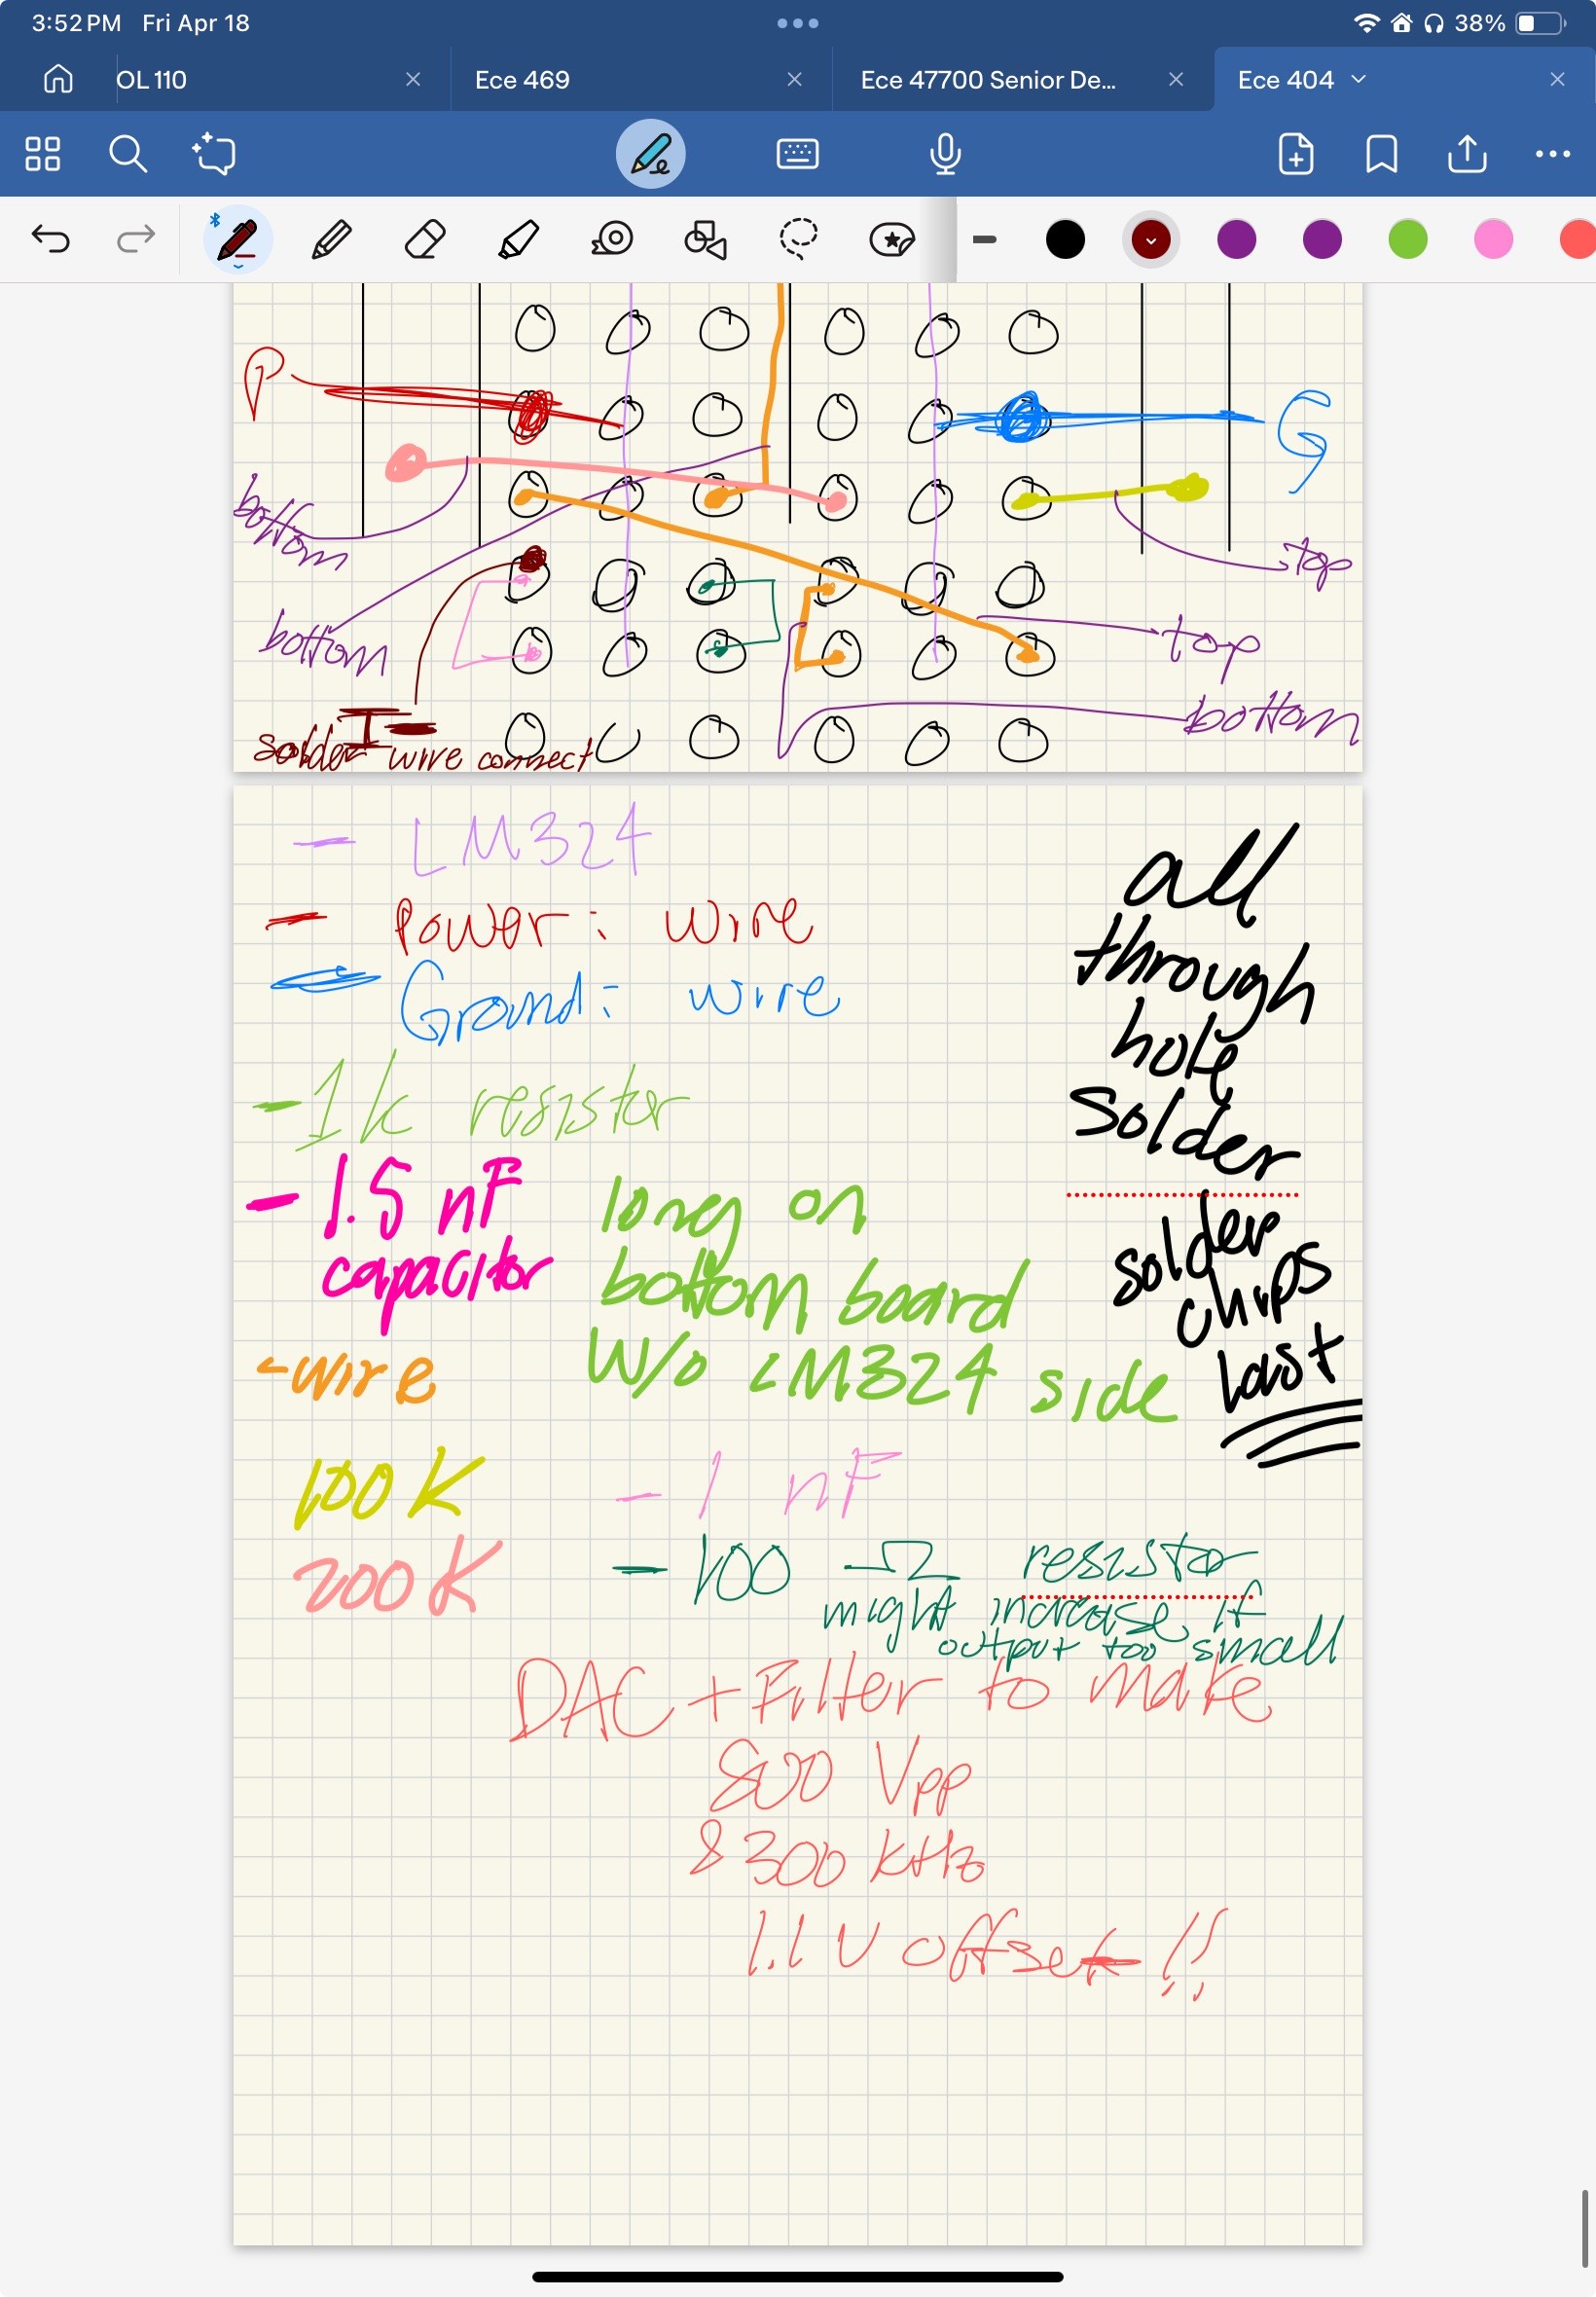 3:52 PM Fri Apr 18
38%
OL 110
Ece 469
Ece 47700 Senior De...
Ece 404
P
G
bottom
top
bottom
top
bottom
solder wire connect
- LM324
- Power: wire
- Ground: wire
- 1k resistor
- 1.5 nF
capacitor
- wire
100 K
200 K
long on
bottom board
W/o LM324 side
- 1 nF
- 100 Ω resistor
might increase if
output too small
all
through
hole
solder
solder
chips
last
DAC + Filter to make
800 Vpp
& 300 KHz
1.1 V offset !!